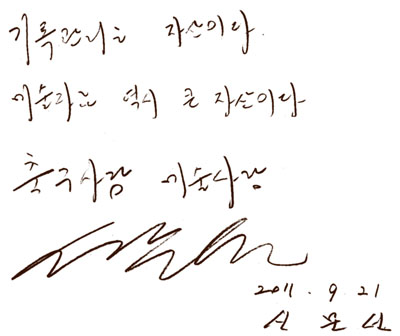 기록관리는 자산이다.
미술관은 역시 큰 자산이다
축구사랑 미술사랑
2011. 9. 21
신 문 선